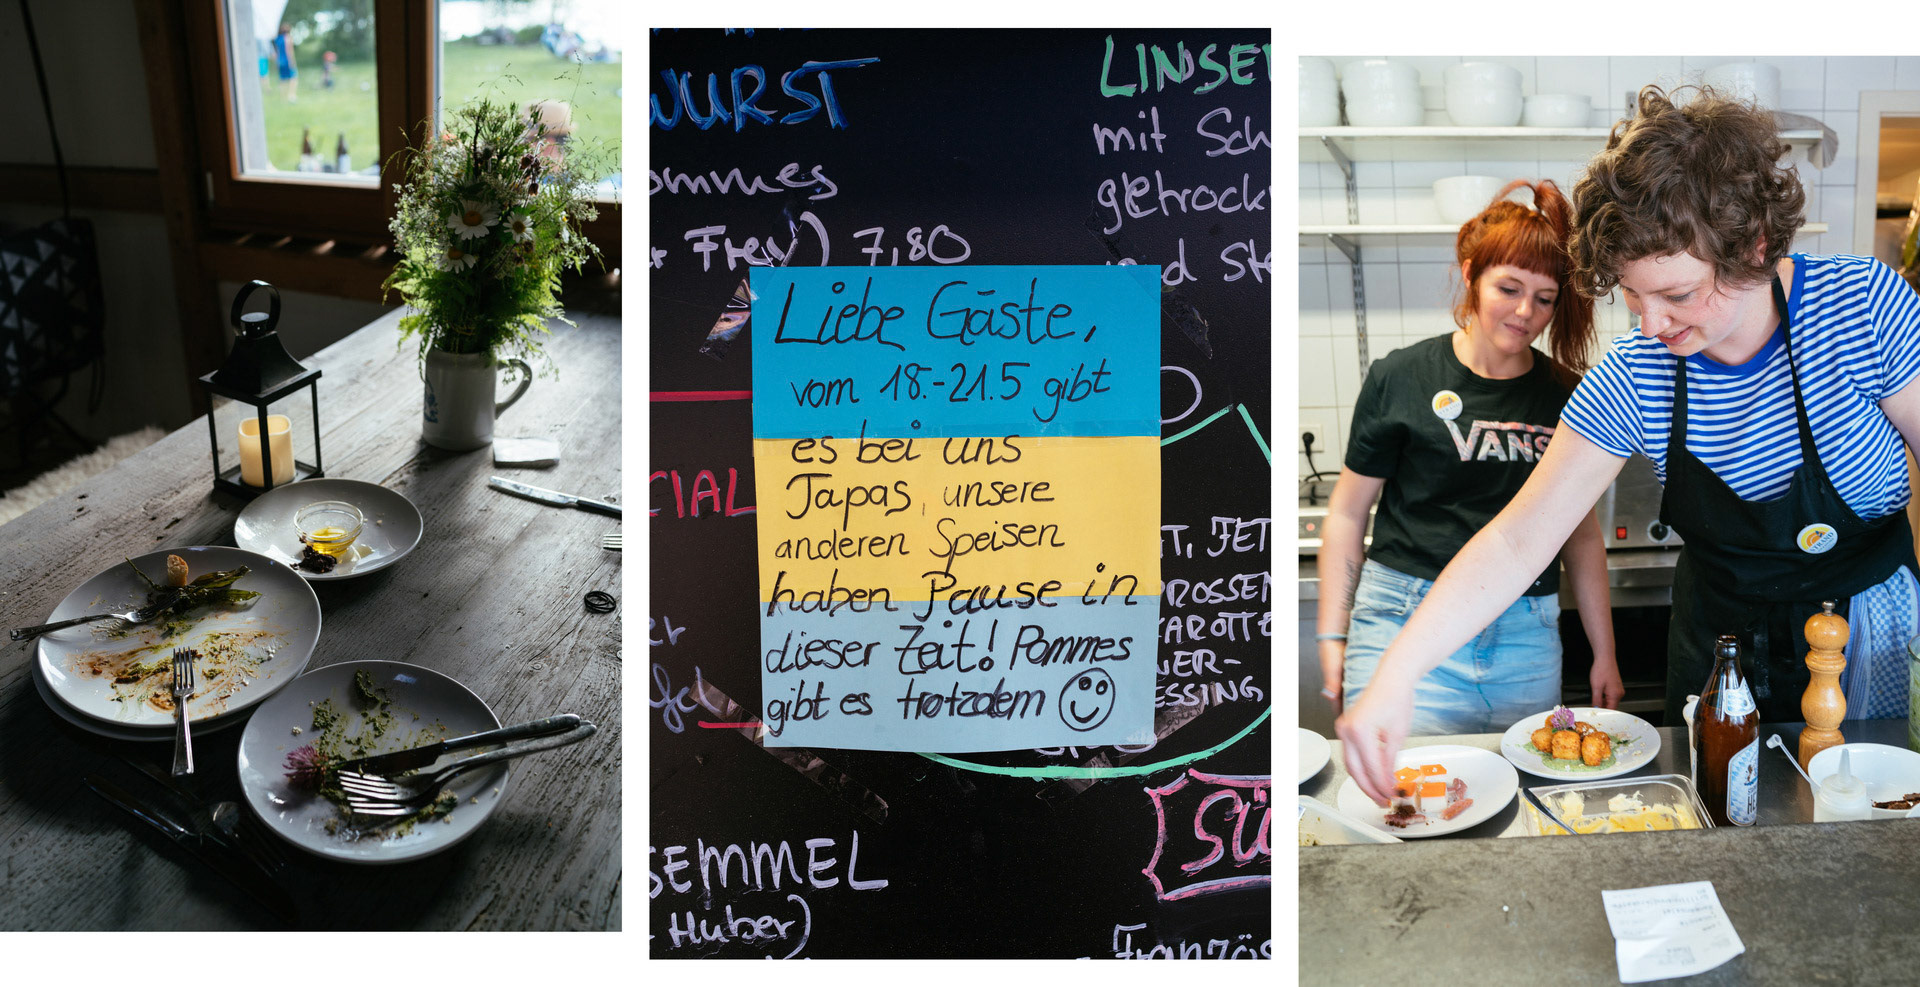 WURST
ommes
Frey) 7,80
LINSE
mit Sch
getrock
d Ste
Liebe Gäste,
vom 18.-21.5 gibt
es bei uns
Tapas, unsere
anderen Speisen
haben Pause in
dieser Zeit! Pommes
gibt es trotzdem
CIAL
T, FET
ROSSEN
AROTTE
NER-
ESSING
SEMMEL
Huber)
SÜ
Französ
VANS
STRAND